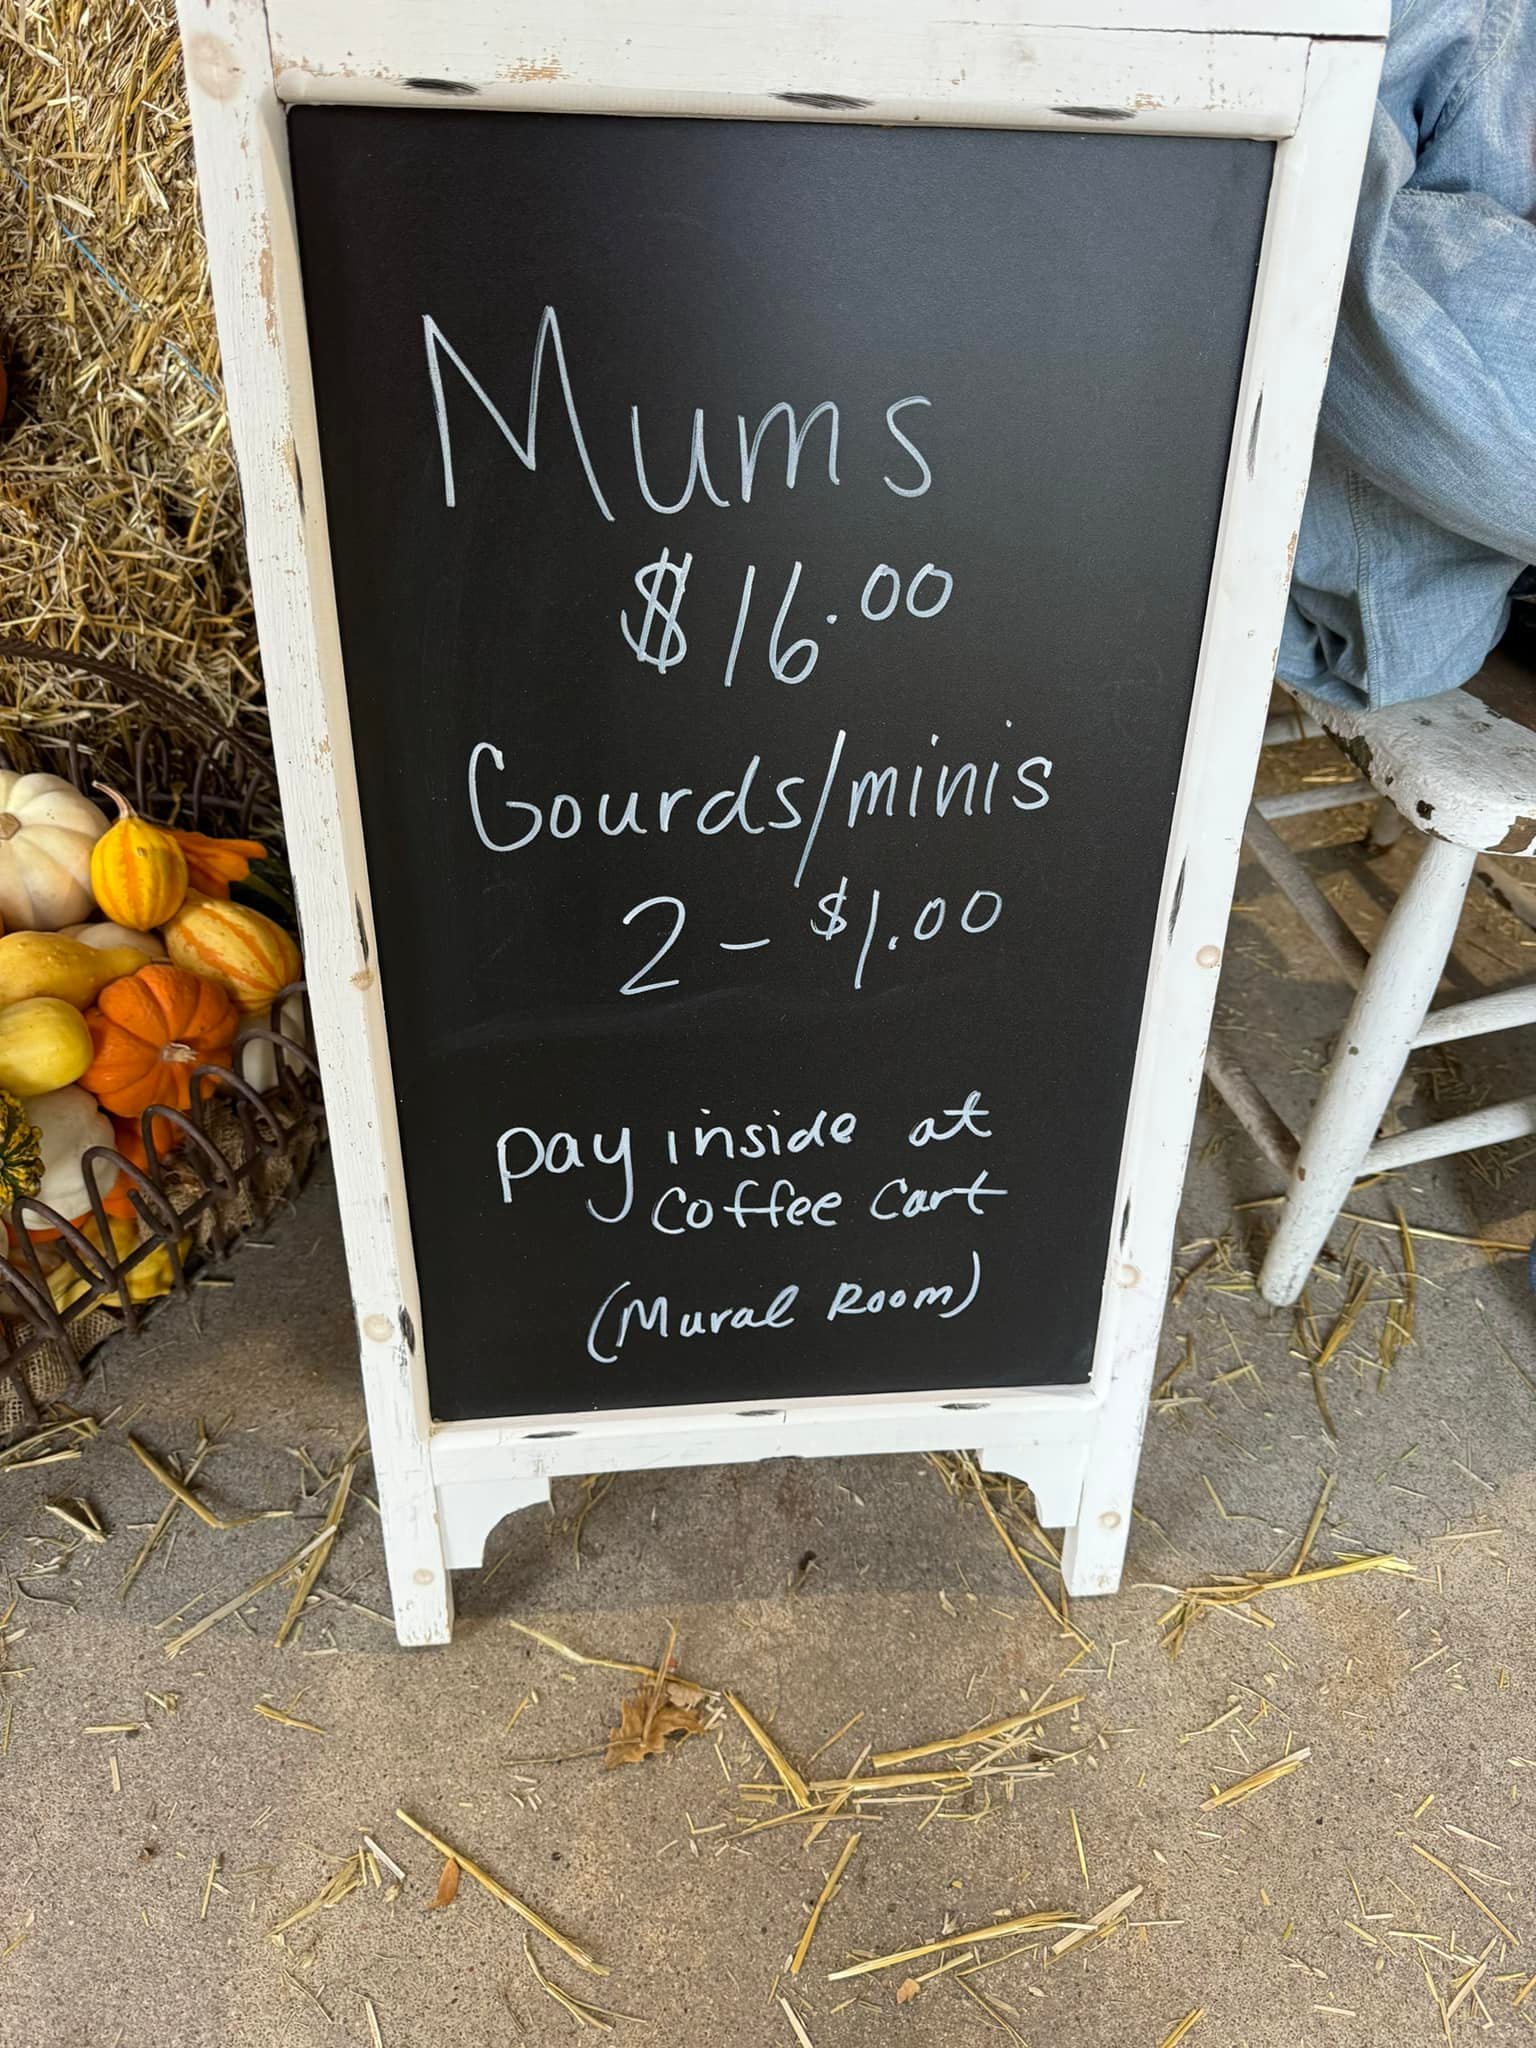 Mums
$16.00
Gourds/minis
2 - $1.00
pay inside at
coffee cart
(Mural Room)